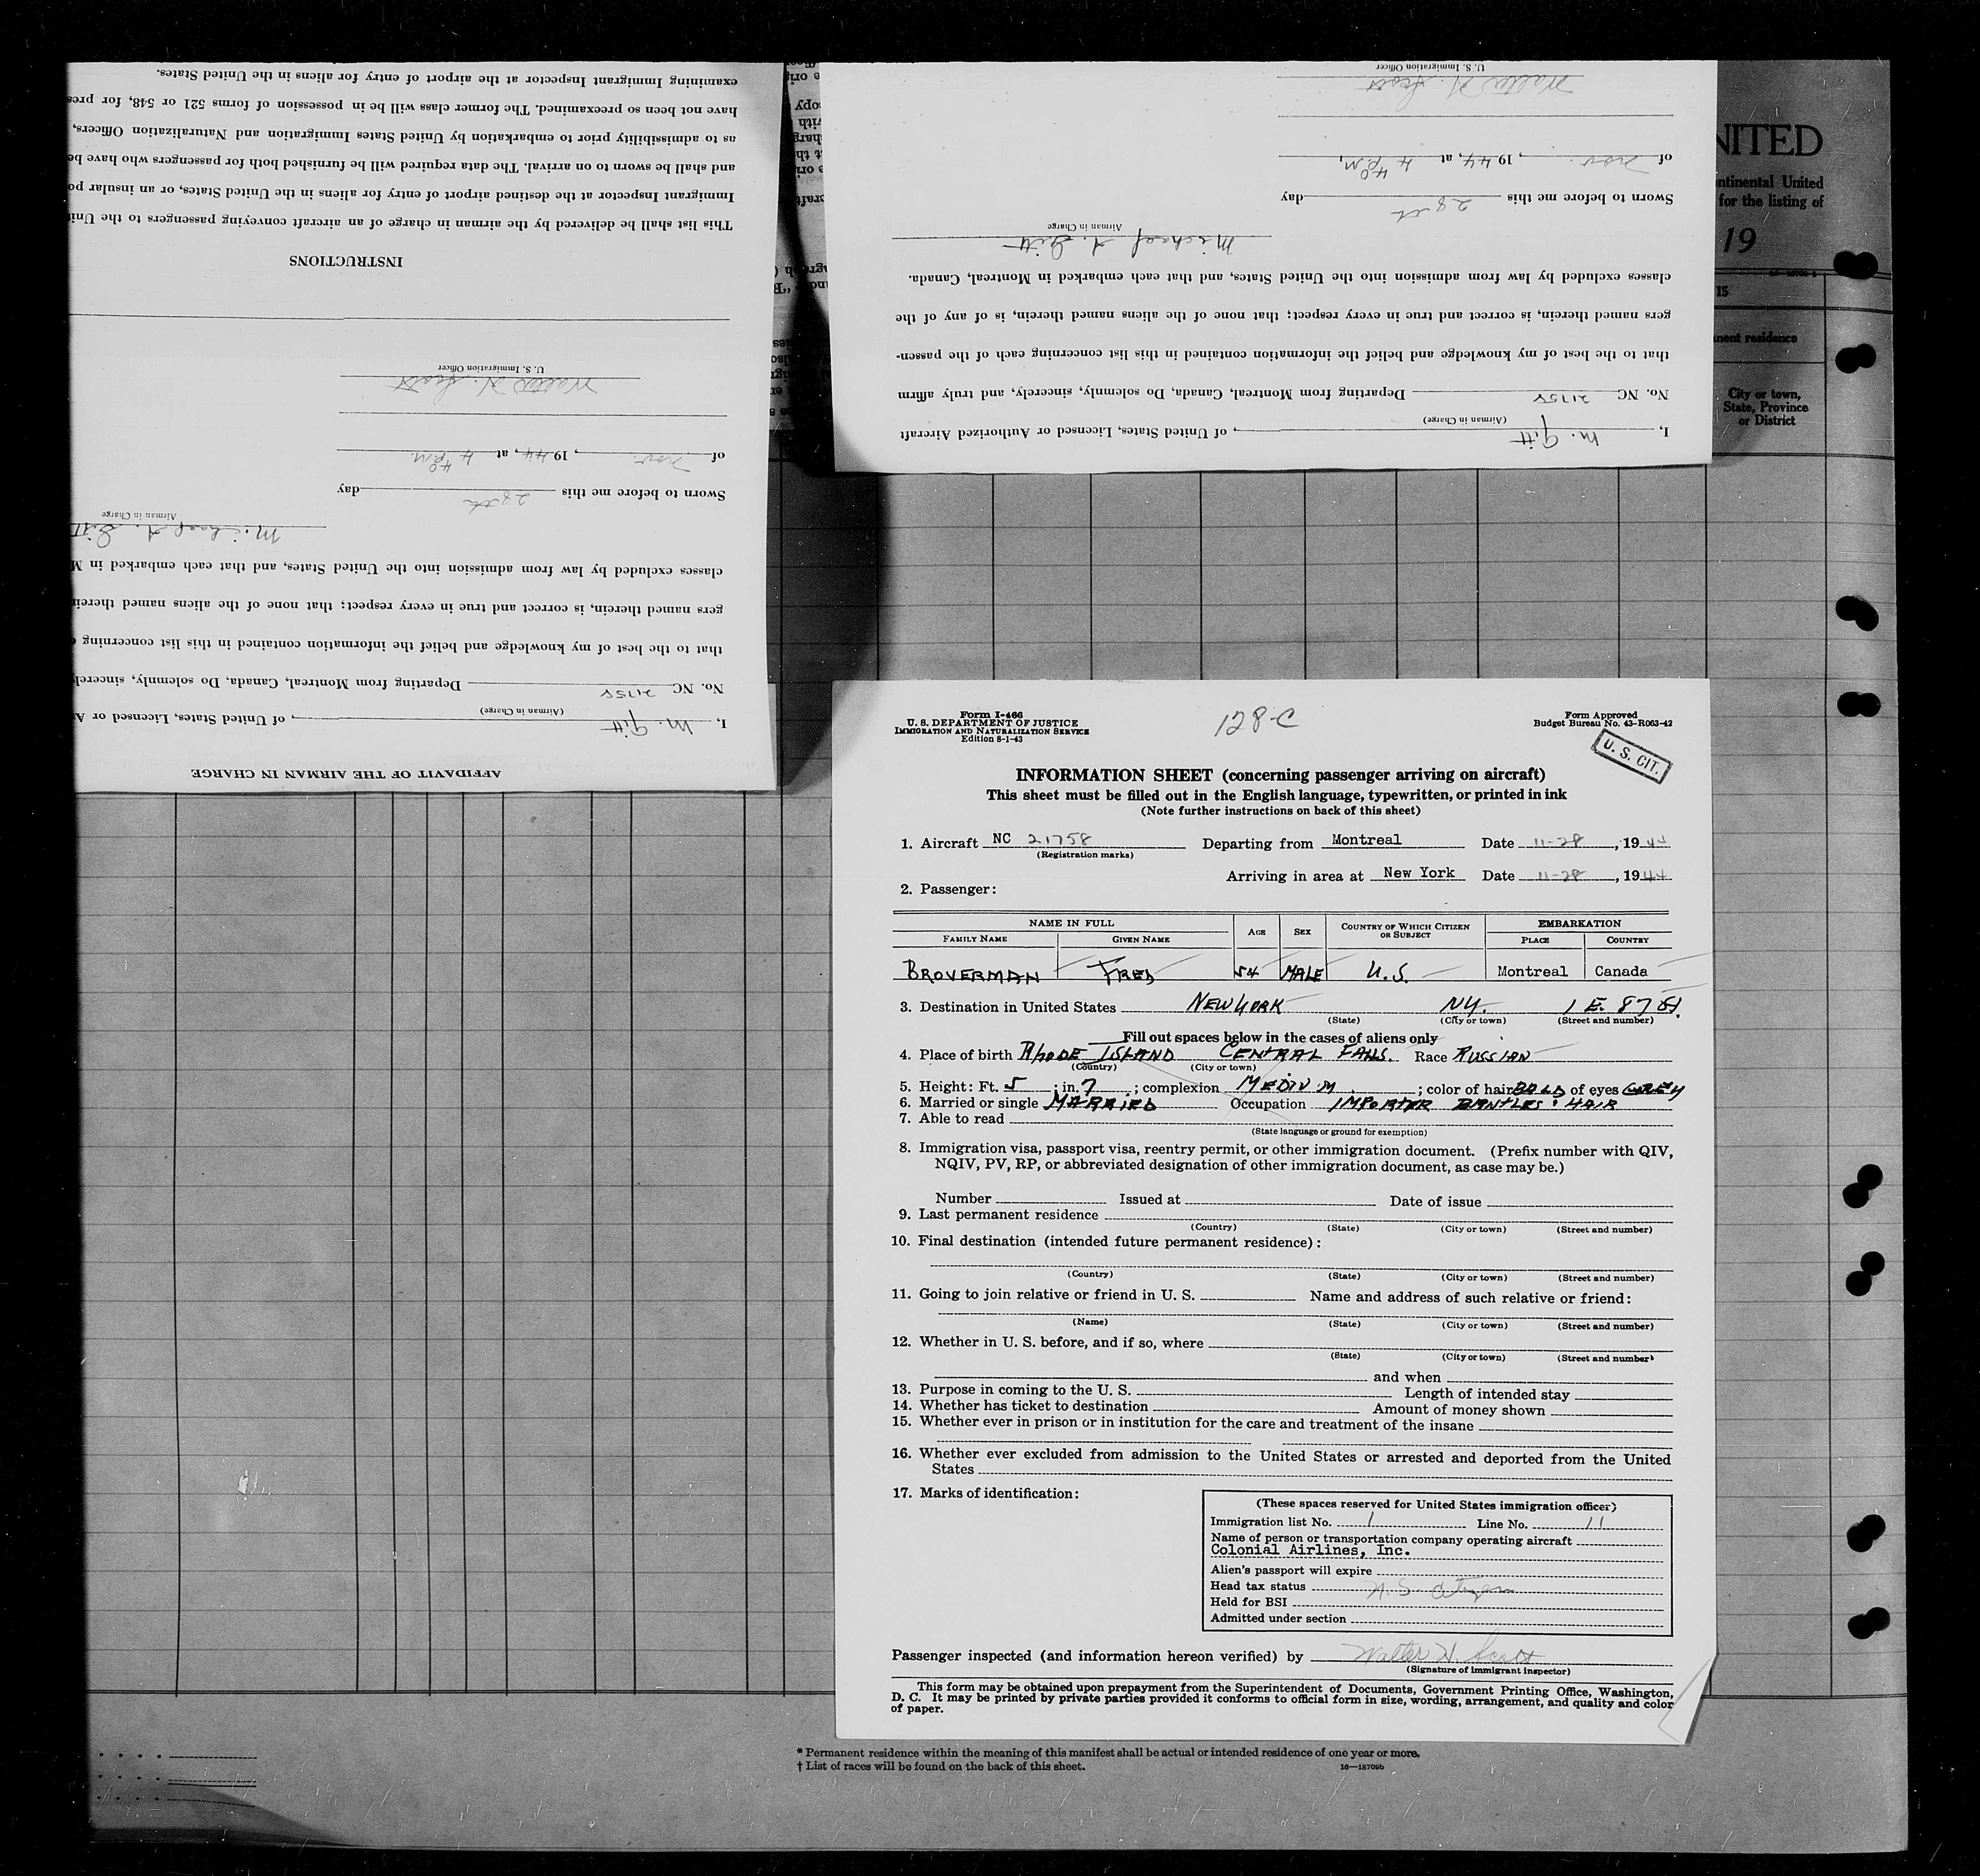 AFFIDAVIT OF THE AIRMAN IN CHARGE
I, M. Gitt, of United States, Licensed or A
(Airman in Charge)
No. NC 21758 Departing from Montreal, Canada, Do solemnly, sincerely
that to the best of my knowledge and belief the information contained in this list concerning
gers named therein, is correct and true in every respect; that none of the aliens named therein
classes excluded by law from admission into the United States, and that each embarked in M
Michael A. Gitt
Airman in Charge
Sworn to before me this 28th day
of Nov., 1944, at 4 40 P.M.
Walter H. Scott
U. S. Immigration Officer
INSTRUCTIONS
This list shall be delivered by the airman in charge of an aircraft conveying passengers to the Uni
Immigrant Inspector at the destined airport of entry for aliens in the United States, or an insular po
and shall be sworn to on arrival. The data required will be furnished both for passengers who have be
as to admissibility prior to embarkation by United States Immigration and Naturalization Officers,
have not been so preexamined. The former class will be in possession of forms 521 or 548, for pres
examining Immigrant Inspector at the airport of entry for aliens in the United States.
I, M. Gitt, of United States, Licensed or Authorized Aircraft
(Airman in Charge)
No. NC 21758 Departing from Montreal, Canada, Do solemnly, sincerely, and truly affirm
that to the best of my knowledge and belief the information contained in this list concerning each of the passen-
gers named therein, is correct and true in every respect; that none of the aliens named therein, is of any of the
classes excluded by law from admission into the United States, and that each embarked in Montreal, Canada.
Michael A. Gitt
Airman in Charge
Sworn to before me this 28th day
of Nov., 1944, at 4 40 P.M.
Walter H. Scott
U. S. Immigration Officer
NITED
ntinental United
for the listing of
19
15
nent residence
City or town,
State, Province
or District
Form I-466
U. S. DEPARTMENT OF JUSTICE
IMMIGRATION AND NATURALIZATION SERVICE
Edition 8-1-43
128-C
Form Approved
Budget Bureau No. 43-R063-42
U. S. CIT.
INFORMATION SHEET (concerning passenger arriving on aircraft)
This sheet must be filled out in the English language, typewritten, or printed in ink
(Note further instructions on back of this sheet)
1. Aircraft NC 21758 Departing from Montreal Date 11-28, 1944
(Registration marks)
Arriving in area at New York Date 11-28, 1944
2. Passenger:
NAME IN FULL AGE SEX COUNTRY OF WHICH CITIZEN OR SUBJECT EMBARKATION
FAMILY NAME GIVEN NAME PLACE COUNTRY
BROVERMAN FRED 54 MALE U.S. Montreal Canada
3. Destination in United States NEW YORK NY. 1 E. 87 St.
(State) (City or town) (Street and number)
Fill out spaces below in the cases of aliens only
4. Place of birth RHODE ISLAND CENTRAL FALLS. Race RUSSIAN
(Country) (City or town)
5. Height: Ft. 5; in. 7; complexion MEDIUM; color of hair BALD of eyes GREY
6. Married or single MARRIED Occupation IMPORTER BRISTLES & HAIR
7. Able to read
(State language or ground for exemption)
8. Immigration visa, passport visa, reentry permit, or other immigration document. (Prefix number with QIV,
NQIV, PV, RP, or abbreviated designation of other immigration document, as case may be.)
Number Issued at Date of issue
9. Last permanent residence
(Country) (State) (City or town) (Street and number)
10. Final destination (intended future permanent residence):
(Country) (State) (City or town) (Street and number)
11. Going to join relative or friend in U. S. Name and address of such relative or friend:
(Name) (State) (City or town) (Street and number)
12. Whether in U. S. before, and if so, where
(State) (City or town) (Street and number)
and when
13. Purpose in coming to the U. S. Length of intended stay
14. Whether has ticket to destination Amount of money shown
15. Whether ever in prison or in institution for the care and treatment of the insane
16. Whether ever excluded from admission to the United States or arrested and deported from the United
States
17. Marks of identification:
(These spaces reserved for United States immigration officer)
Immigration list No. 1 Line No. 11
Name of person or transportation company operating aircraft
Colonial Airlines, Inc.
Alien's passport will expire
Head tax status U.S. Citizen
Held for BSI
Admitted under section
Passenger inspected (and information hereon verified) by Walter H. Scott
(Signature of immigrant inspector)
This form may be obtained upon prepayment from the Superintendent of Documents, Government Printing Office, Washington,
D. C. It may be printed by private parties provided it conforms to official form in size, wording, arrangement, and quality and color
of paper.
* Permanent residence within the meaning of this manifest shall be actual or intended residence of one year or more.
† List of races will be found on the back of this sheet.
16—18709b